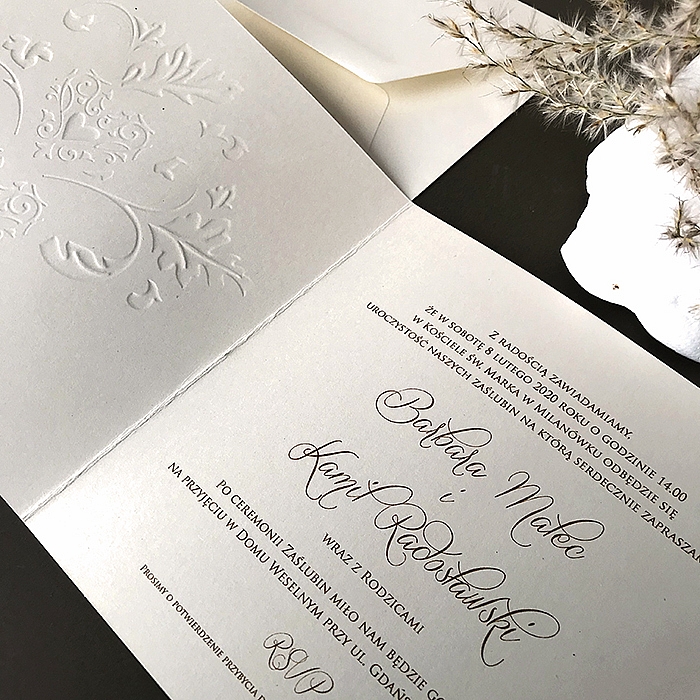 Z RADOŚCIĄ ZAWIADAMIAMY,
ŻE W SOBOTĘ 8 LUTEGO 2020 ROKU O GODZINIE 14.00
W KOŚCIELE ŚW. MARKA W MILANÓWKU ODBĘDZIE SIĘ
UROCZYSTOŚĆ NASZYCH ZAŚLUBIN NA KTÓRĄ SERDECZNIE
Barbara Malec
i
Kamil Radosławski
WRAZ Z RODZICAMI
PO CEREMONII ZAŚLUBIN MIŁO NAM BĘDZIE
NA PRZYJĘCIU W DOMU WESELNYM PRZY UL.
RSVP
PROSIMY O POTWIERDZENIE PRZYBYCIA